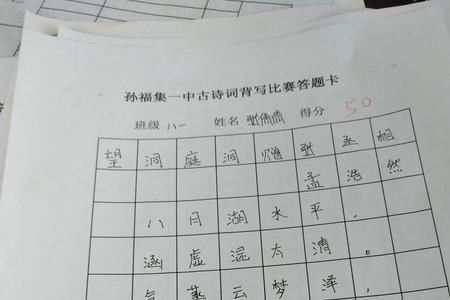 孙福集一中古诗词背写比赛答题卡
班级 八一 姓名 张倩倩 得分 50
望洞庭洞赠张丞相
孟浩然
八月湖水平，
涵虚混太清。
气蒸云梦泽，